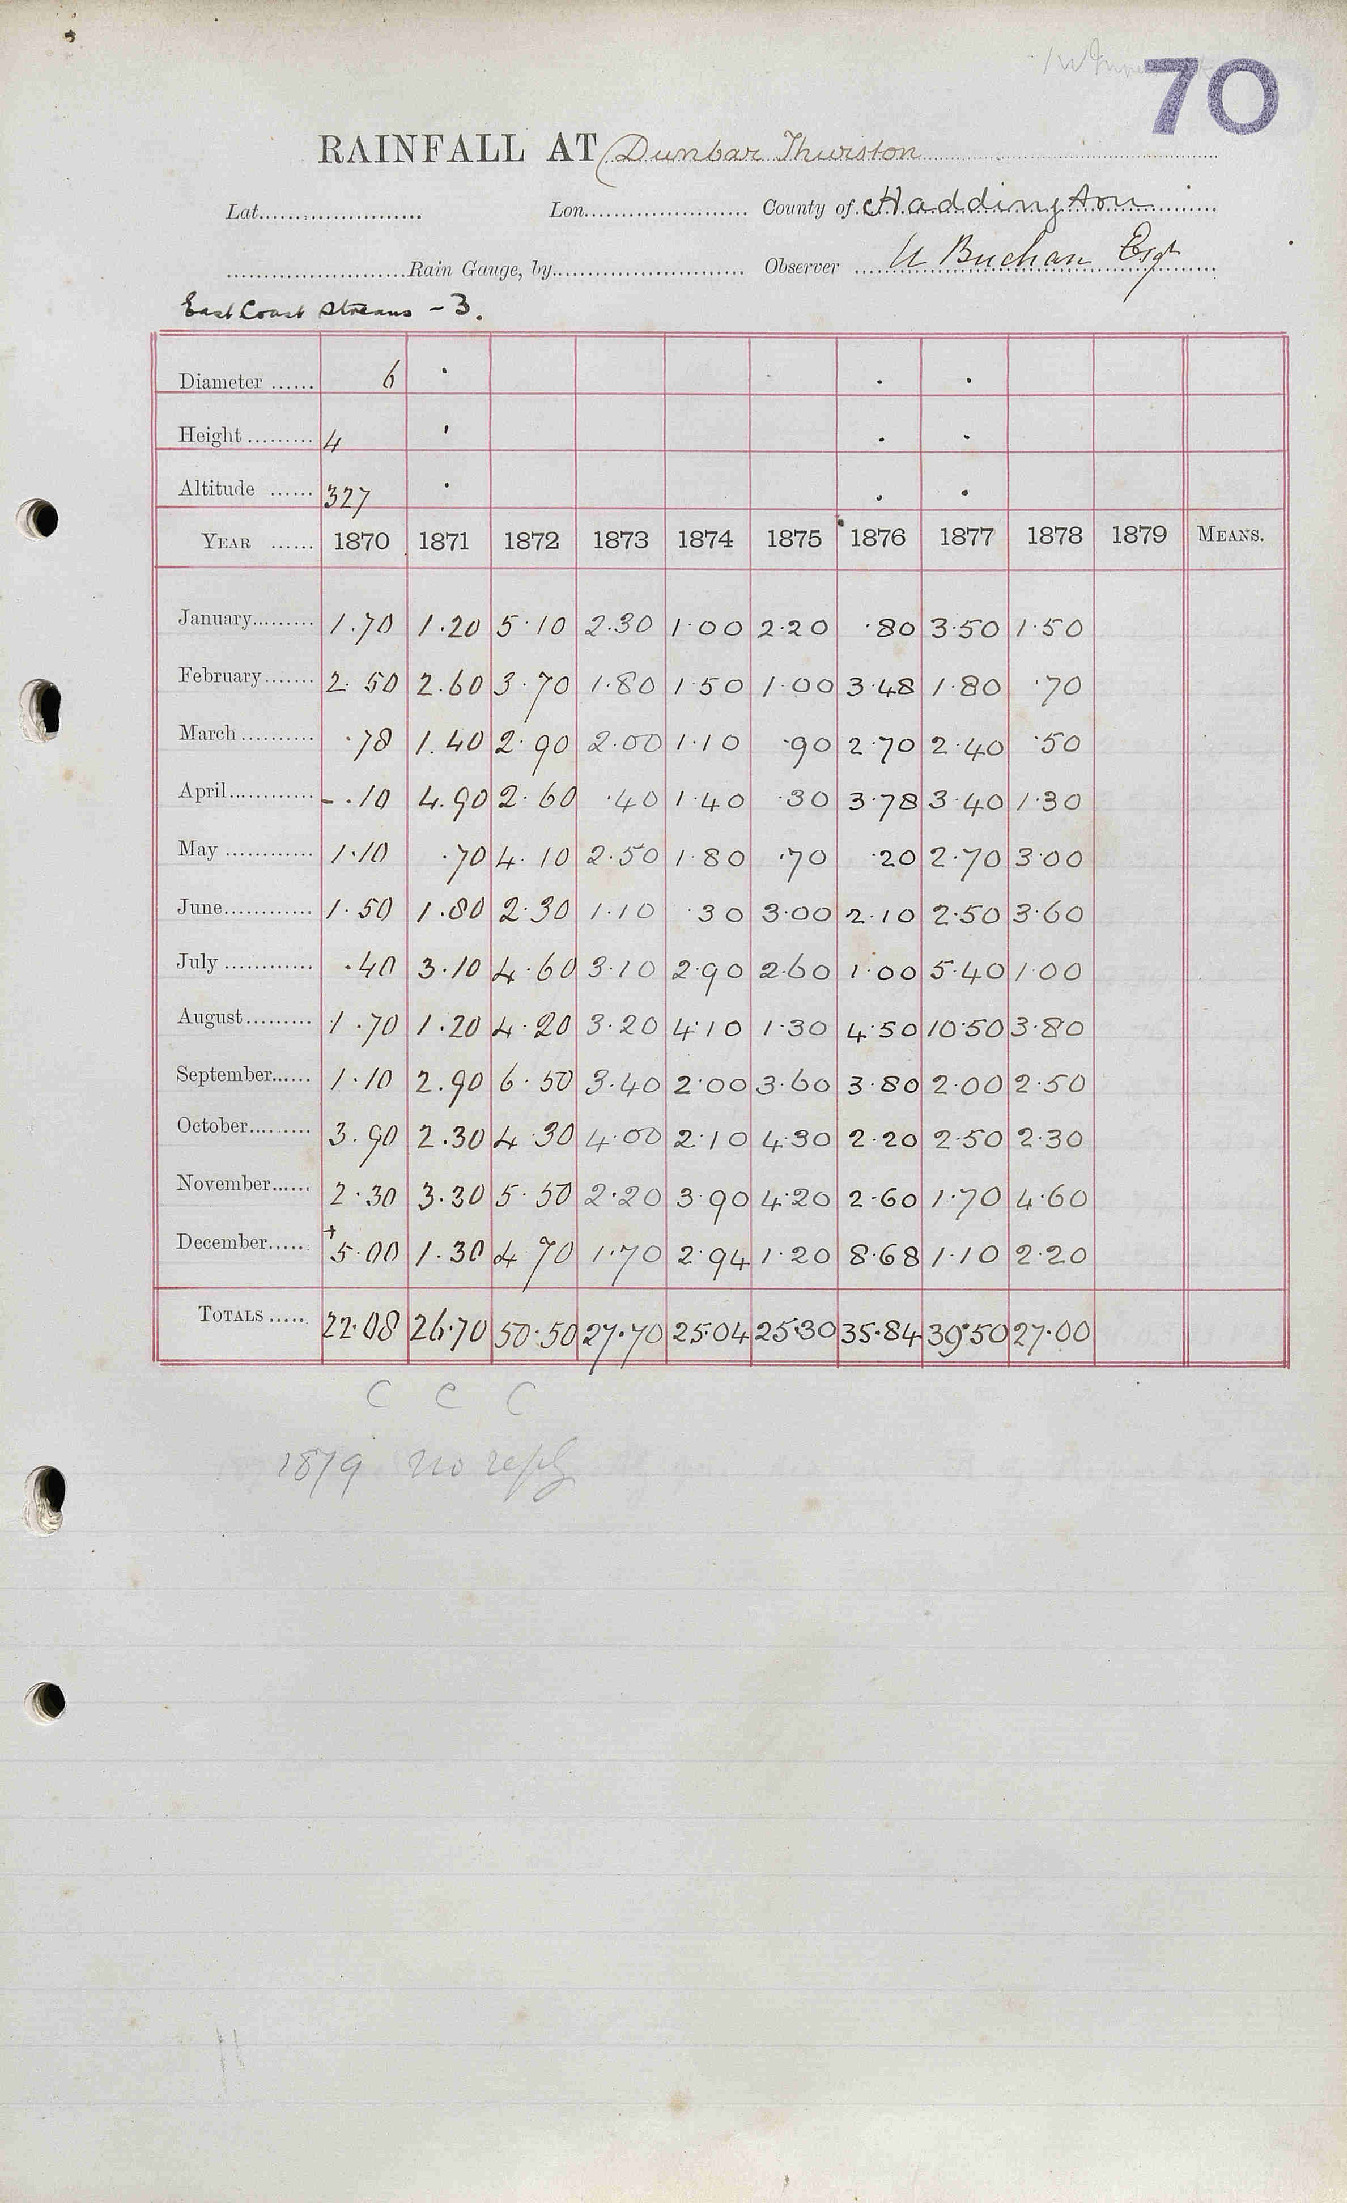 70
RAINFALL AT Dunbar Thurston
Lat. Lon. County of Haddington
Rain Gauge, by Observer Buchan Esqr
East Coast Streams - 3.
Diameter 6
Height 4
Altitude 327
YEAR 1870 1871 1872 1873 1874 1875 1876 1877 1878 1879 MEANS.
January 1.70 1.20 5.10 2.30 1.00 2.20 .80 3.50 1.50
February 2.50 2.60 3.70 1.80 1.50 1.00 3.48 1.80 .70
March .78 1.40 2.90 2.00 1.10 .90 2.70 2.40 .50
April -.10 4.90 2.60 .40 1.40 .30 3.78 3.40 1.30
May 1.10 .70 4.10 2.50 1.80 .70 .20 2.70 3.00
June 1.50 1.80 2.30 1.10 .30 3.00 2.10 2.50 3.60
July .40 3.10 4.60 3.10 2.90 2.60 1.00 5.40 1.00
August 1.70 1.20 4.20 3.20 4.10 1.30 4.50 10.50 3.80
September 1.10 2.90 6.50 3.40 2.00 3.60 3.80 2.00 2.50
October 3.90 2.30 4.30 4.00 2.10 4.30 2.20 2.50 2.30
November 2.30 3.30 5.50 2.20 3.90 4.20 2.60 1.70 4.60
December +5.00 1.30 4.70 1.70 2.94 1.20 8.68 1.10 2.20
TOTALS 22.08 26.70 50.50 27.70 25.04 25.30 35.84 39.50 27.00
C C C
1879 no reply